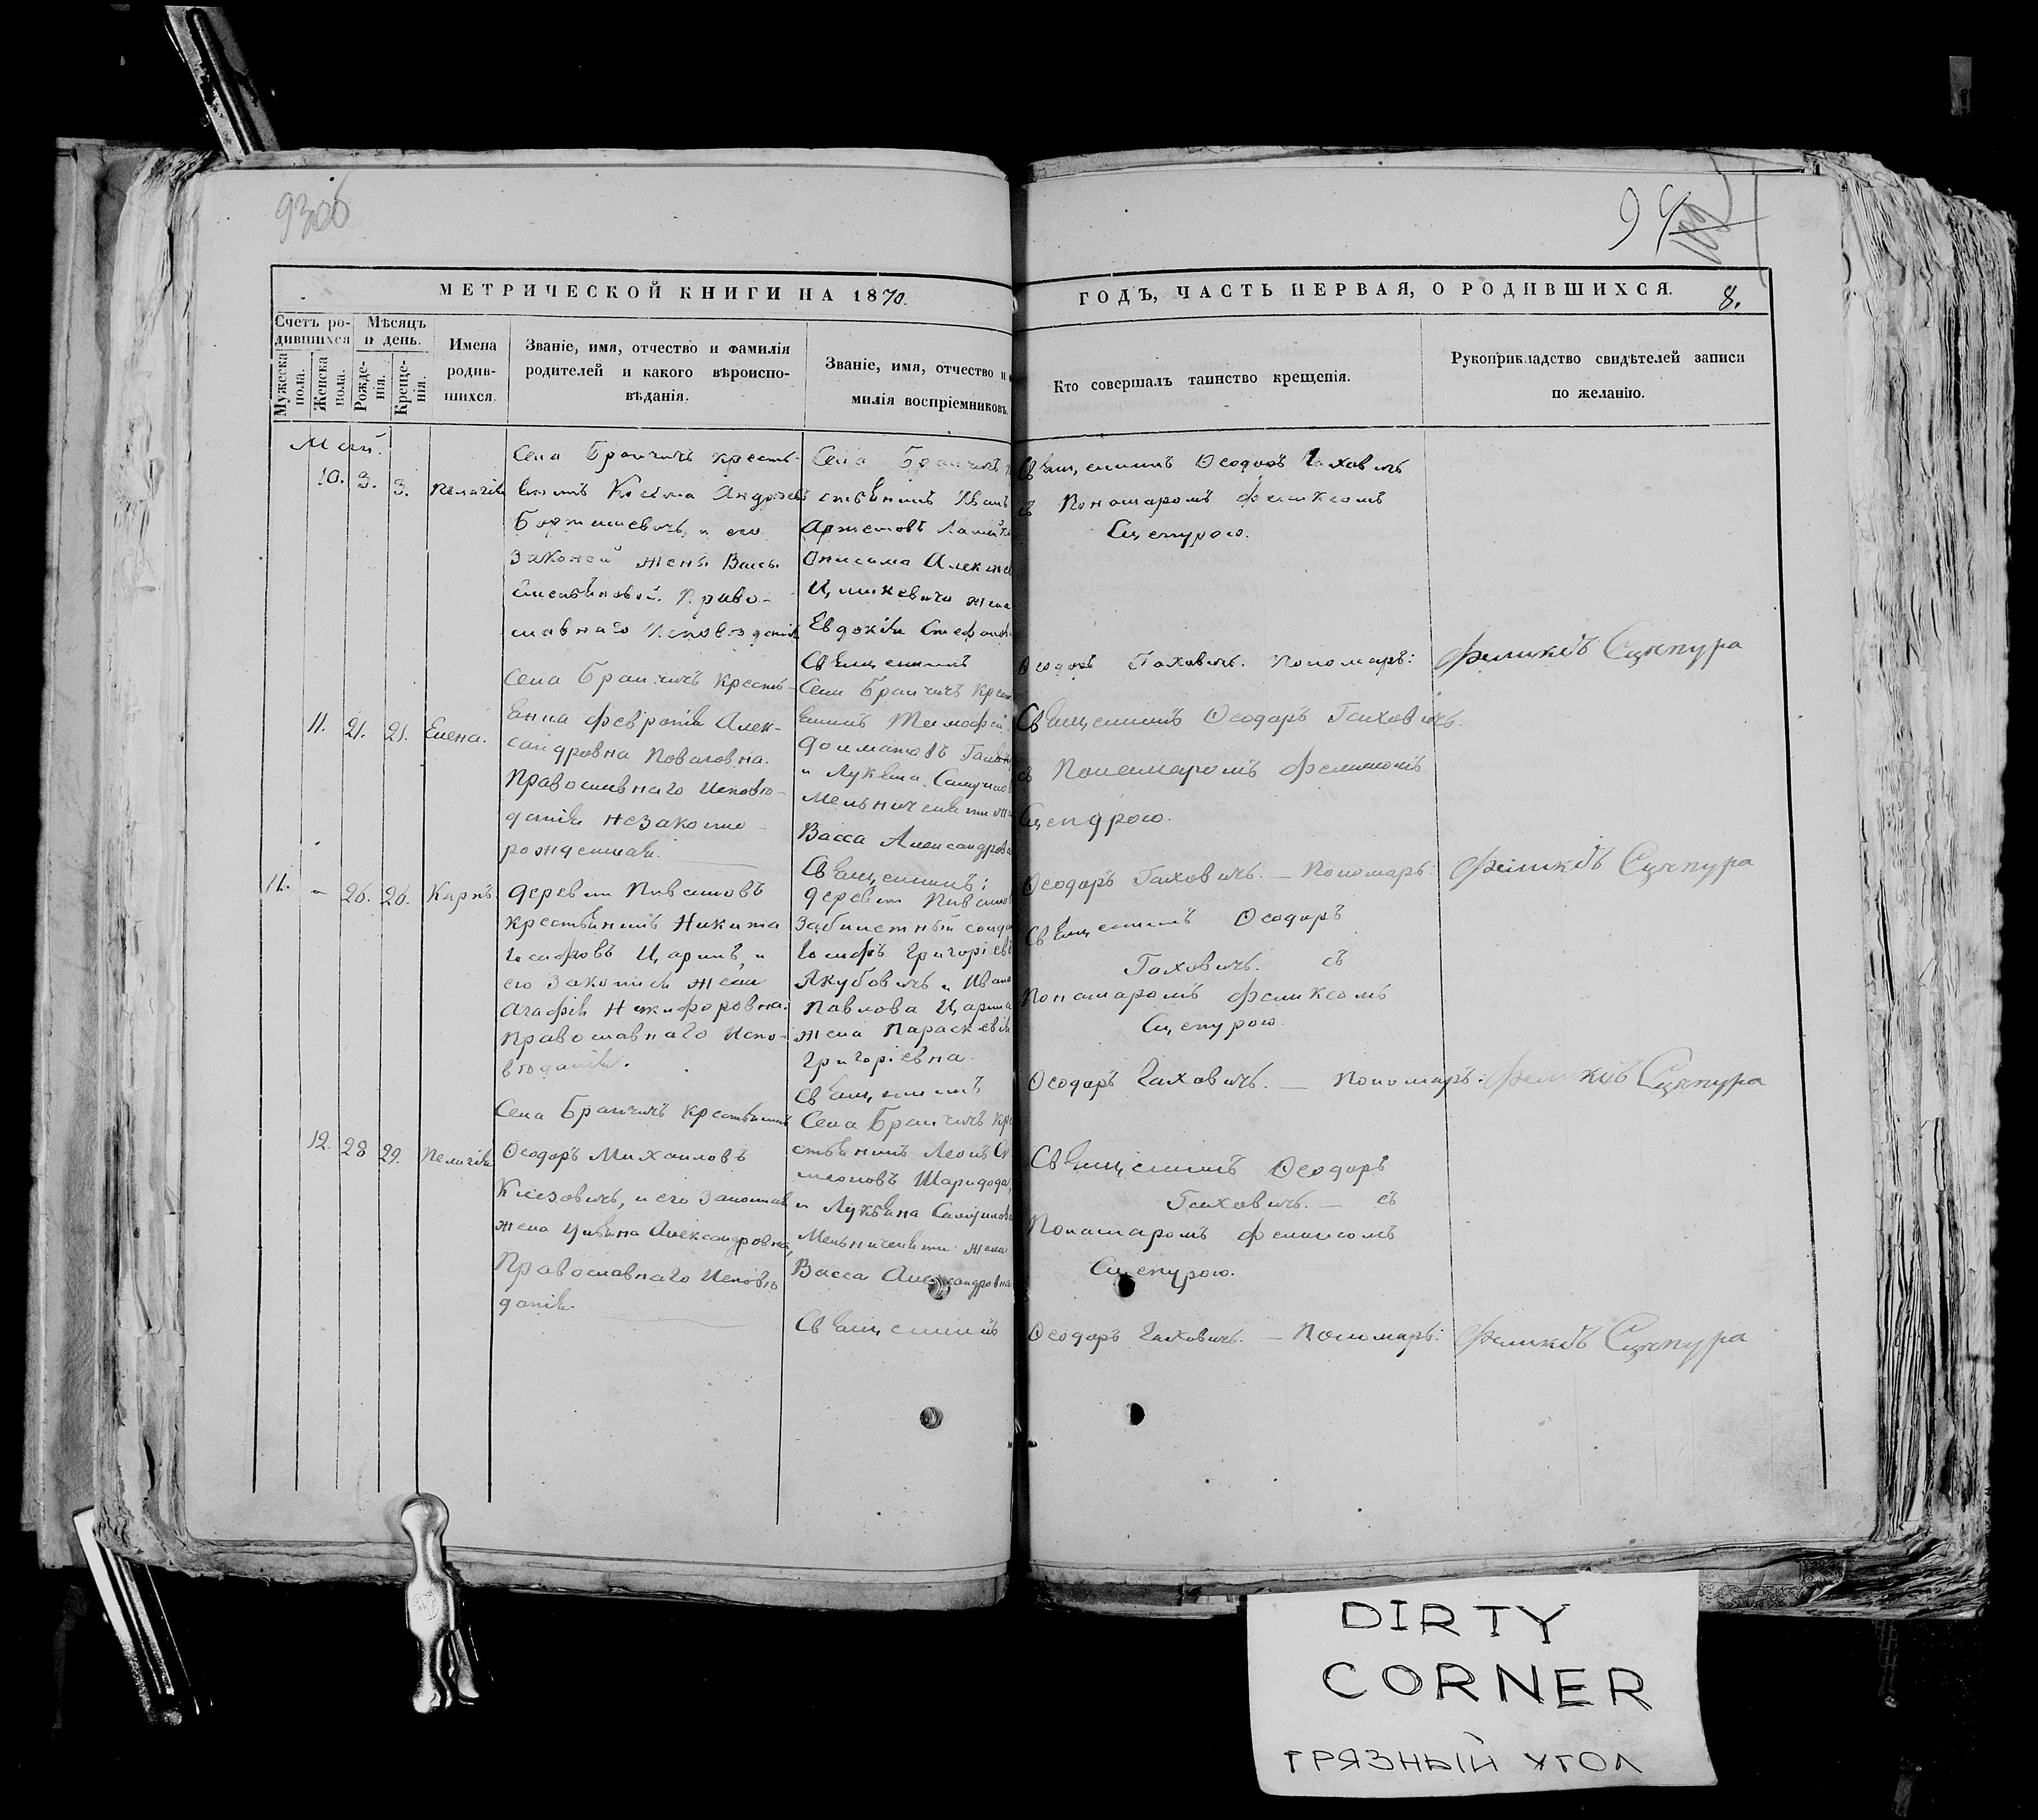 93об
94
МЕТРИЧЕСКОЙ КНИГИ НА 1870.
ГОДЪ, ЧАСТЬ ПЕРВАЯ, О РОДИВШИХСЯ.
8.
Счетъ ро-
дившихся
Мѣсяцъ
и день.
Мужеска
пола.
Женска
пола.
Рожде-
нія.
Креще-
нія.
Имена
родив-
шихся.
Званіе, имя, отчество и фамилія
родителей и какого вѣроиспо-
вѣданія.
Званіе, имя, отчество и
милія воспріемниковъ.
Кто совершалъ таинство крещенія.
Рукоприкладство свидѣтелей записи
по желанію.
Май.
10. 3. 3. Пелагія
Села Браичичъ кресть-
янинъ Косьма Андреевъ
и его
законой жены Вассы
Право-
славнаго Исповѣданія
Села Браичичъ
стьянинъ Иванъ
Онисима Алексѣе
жена
Евдокія Стефанов
Священникъ
Священникъ Ѳеодоръ Гаховичъ
съ Пономаромъ Феликсомъ
Сцепурою.
Ѳеодоръ Гаховичъ. Пономарь:
Феликсъ Сцепура
11. 21. 21. Елена.
Села Браичичъ кресть-
янка Февронія Алек-
сандровна
Православнаго Исповѣ-
данія незаконно
рожденная.
Села Браичичъ Крест
янинъ Тимофей
и Лукьяна Самуилов
Мельниченяти
Васса Александров
Священникъ:
Священникъ Ѳеодоръ Гаховичъ.
съ Пономаромъ Феликсомъ
Сцепурою.
Ѳеодоръ Гаховичъ. — Пономарь:
Феликсъ Сцепура
11. - 26. 26. Карпъ.
деревни Пивашовъ
крестьянинъ Никита
Іосифовъ Царикъ, и
его Законная жена
Агафія Никифоровна.
Православнаго Испо-
вѣданія.
деревни Пивашов
Забилетный солда
Іосифъ Григоріевъ
Якубовичъ и Ивана
Павлова Царика
жена Параскевія
Григоріевна.
Священникъ
Священникъ Ѳеодоръ
Гаховичъ. съ
Пономаромъ Феликсомъ
Сцепурою.
Ѳеодоръ Гаховичъ. — Пономарь:
Феликсъ Сцепура
12. 28 29. Пелагія
Села Браичичъ крестьянинъ
Ѳеодоръ Михаиловъ
и его Законная
жена Ульяна Александровна,
Православнаго Исповѣ
данія.
Села Браичичъ Кре
стьянинъ Леонъ Си
меоновъ Шаридода,
и Лукьяна Самуилова
Мельниченяти жена
Васса Александровна
Священникъ
Священникъ Ѳеодоръ
Гаховичъ. — съ
Пономаромъ Феликсомъ
Сцепурою.
Ѳеодоръ Гаховичъ. — Пономарь:
Феликсъ Сцепура
DIRTY
CORNER
ГРЯЗНЫЙ УГОЛ